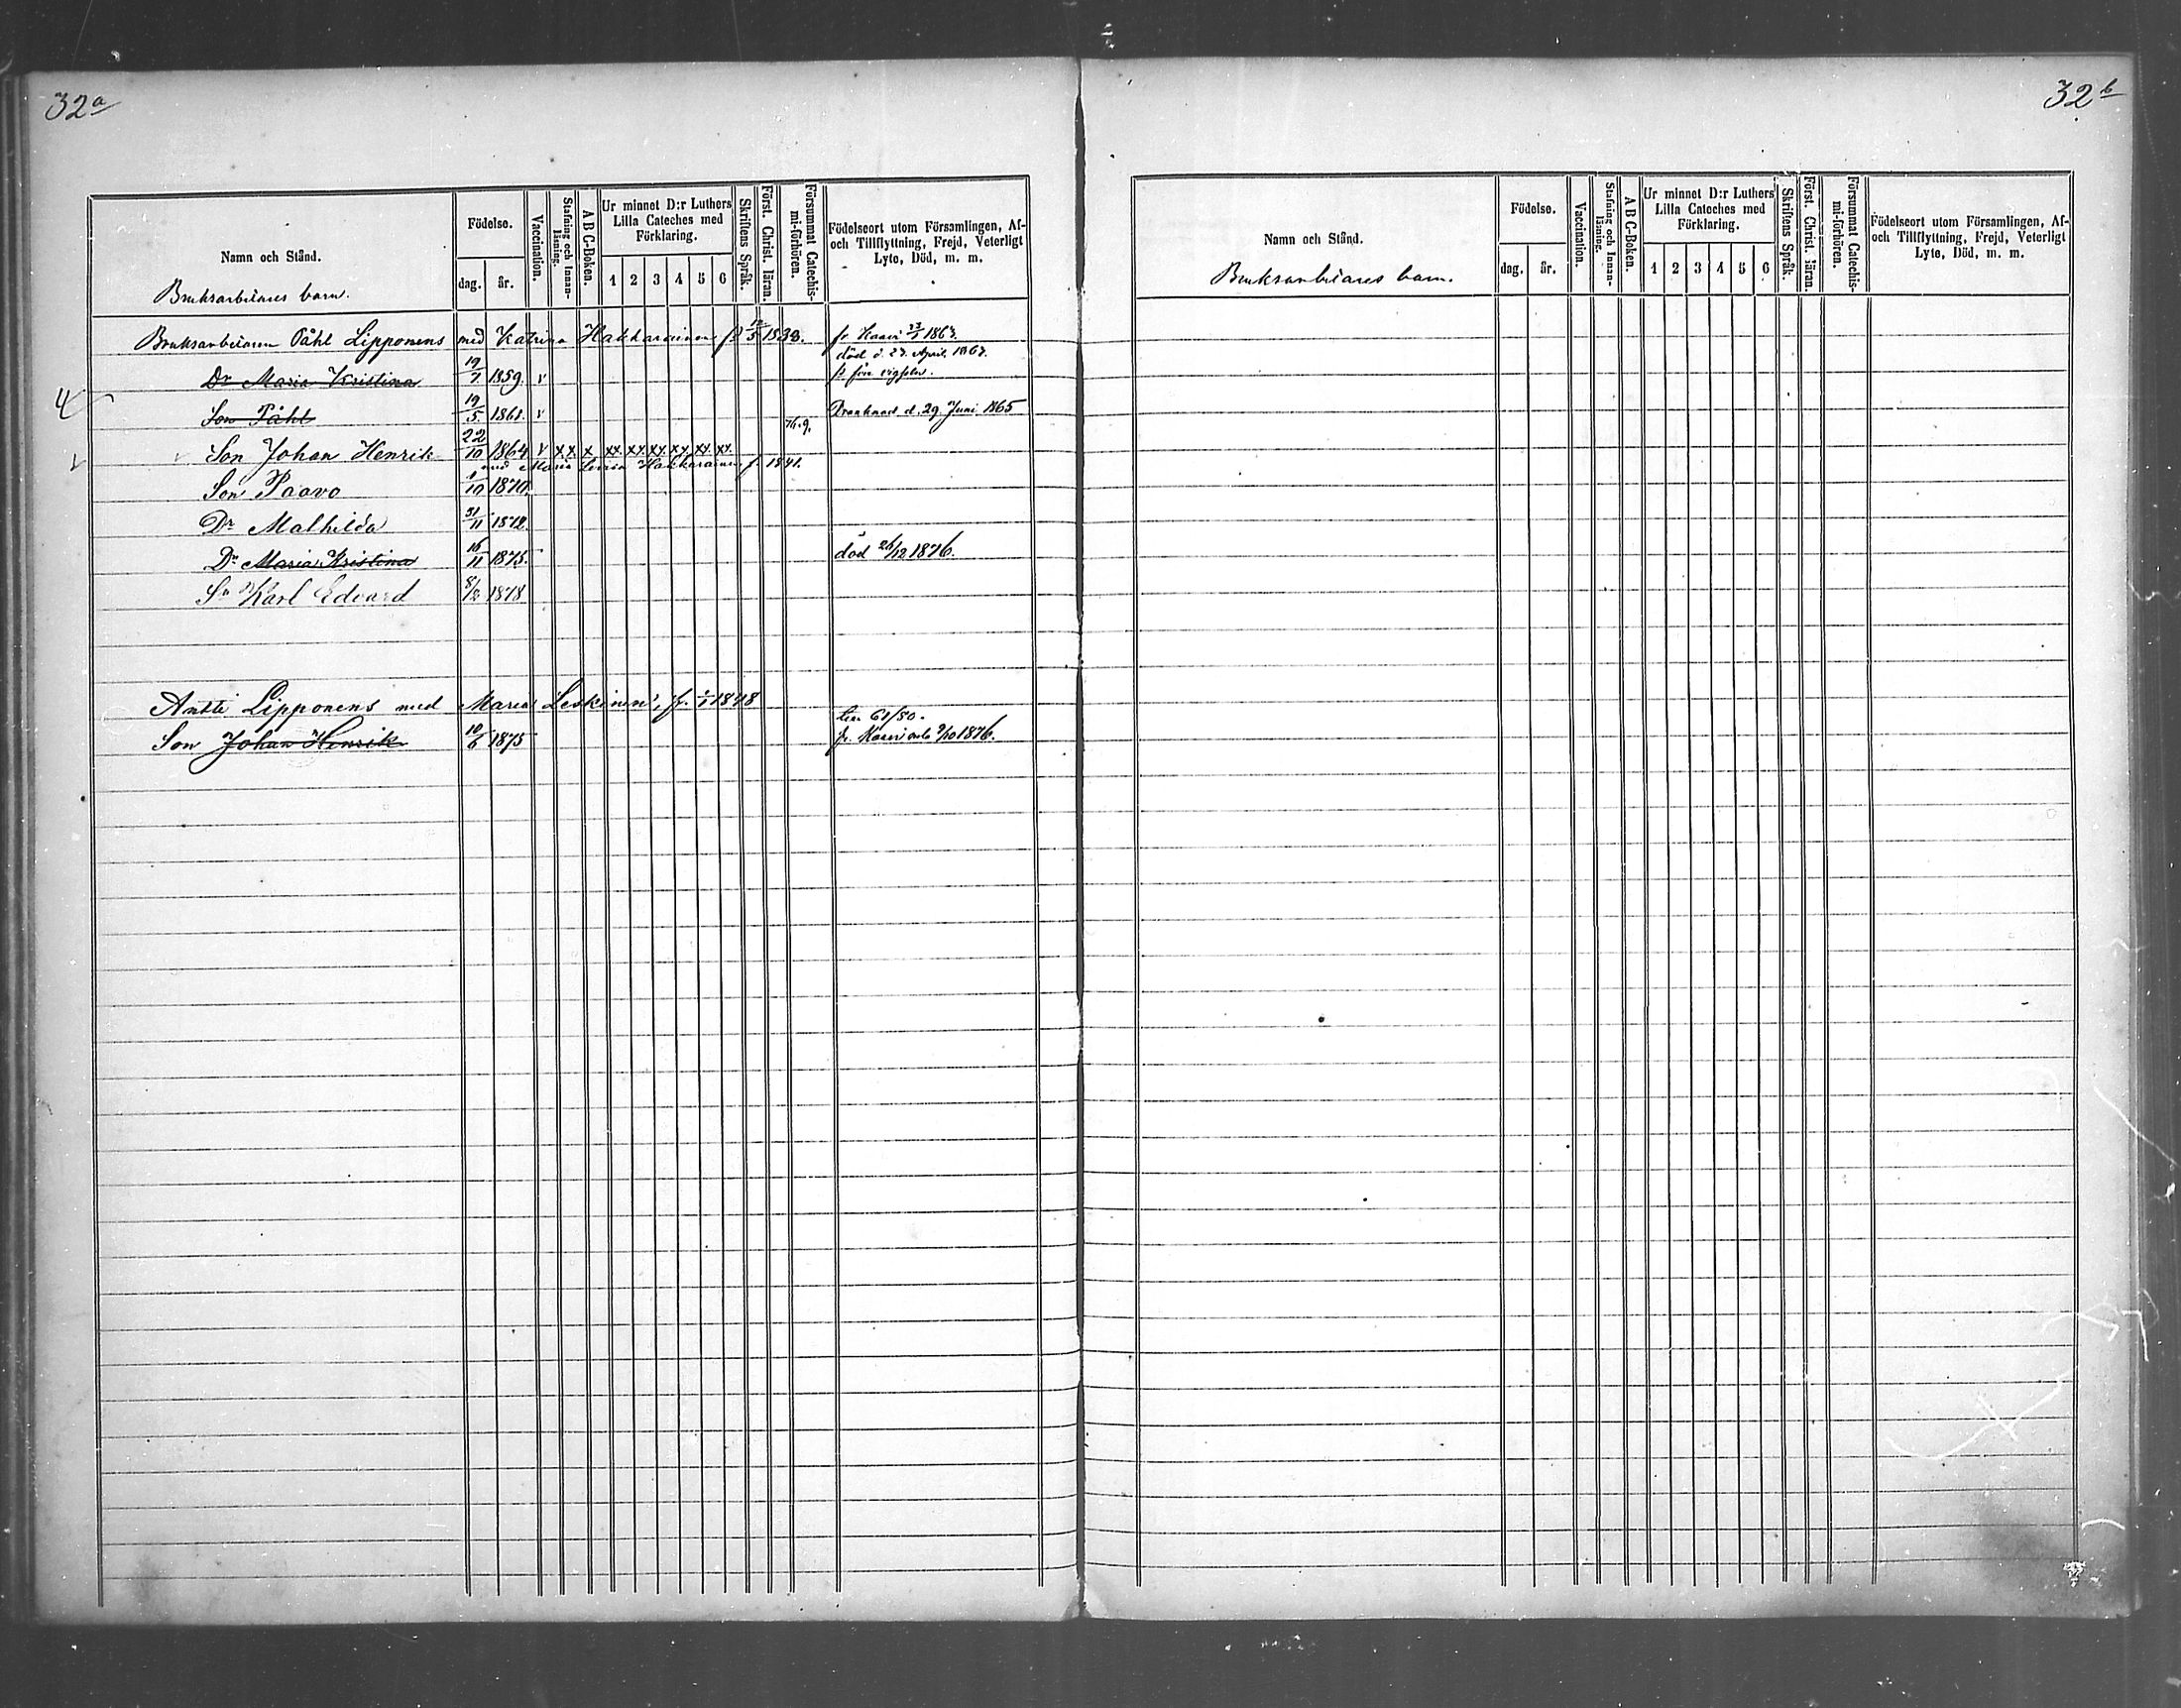 32a
Namn och Stånd.
Bruksarbetares barn.
Födelse.
dag. år.
Vaccination.
Stafning och Innan-
läsning.
A B C-Boken.
Ur minnet D:r Luthers
Lilla Cateches med
Förklaring.
1 2 3 4 5 6
Skriftens Språk.
Först. Christ. läran.
Försummat Catechis-
mi-förhören.
Födelseort utom Församlingen, Af-
och Tillflyttning, Frejd, Veterligt
Lyte, Död, m. m.
Bruksarbetaren Påhl Lipponens med Katrina Hakkarainen f. 12/5 1838. fr Kaavi 23/1 1863.
död d. 27 April 1867.
Dr Maria Kristina 19/7 1859. v f. före vigseln.
4
Son Påhl 19/5 1861. v Drunknad d. 29 Juni 1865
76.9.
v Son Johan Henrik 22/10 1864 v xx x xx xx xx xx xx xx
med Maria Hakkarainen f. 1841.
Son Paavo 1/10 1870.
Dr Mathilda 31/11 1872.
Dr Maria Kristina 16/11 1875. död 26/12 1876.
Sn Karl Edvard 8/2 1878
Antti Lipponens med Maria Leskinen, f. 1/1 1848
61/80.
Son Johan Henrik 10/6 1875 fr. Kaavi 9/10 1876.
32b
Namn och Stånd.
Bruksarbetares barn.
Födelse.
dag. år.
Vaccination.
Stafning och Innan-
läsning.
A B C-Boken.
Ur minnet D:r Luthers
Lilla Cateches med
Förklaring.
1 2 3 4 5 6
Skriftens Språk.
Först. Christ. läran.
Försummat Catechis-
mi-förhören.
Födelseort utom Församlingen, Af-
och Tillflyttning, Frejd, Veterligt
Lyte, Död, m. m.